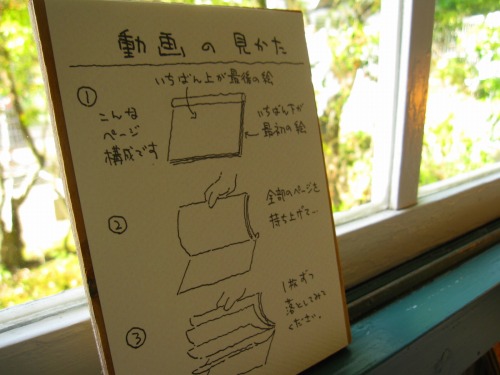 動画の見かた
いちばん上が最後の絵
①
こんな
ページ
構成です
いちばん下が
最初の絵
②
全部のページを
持ち上げて…
③
1枚ずつ
落としてみて
ください。